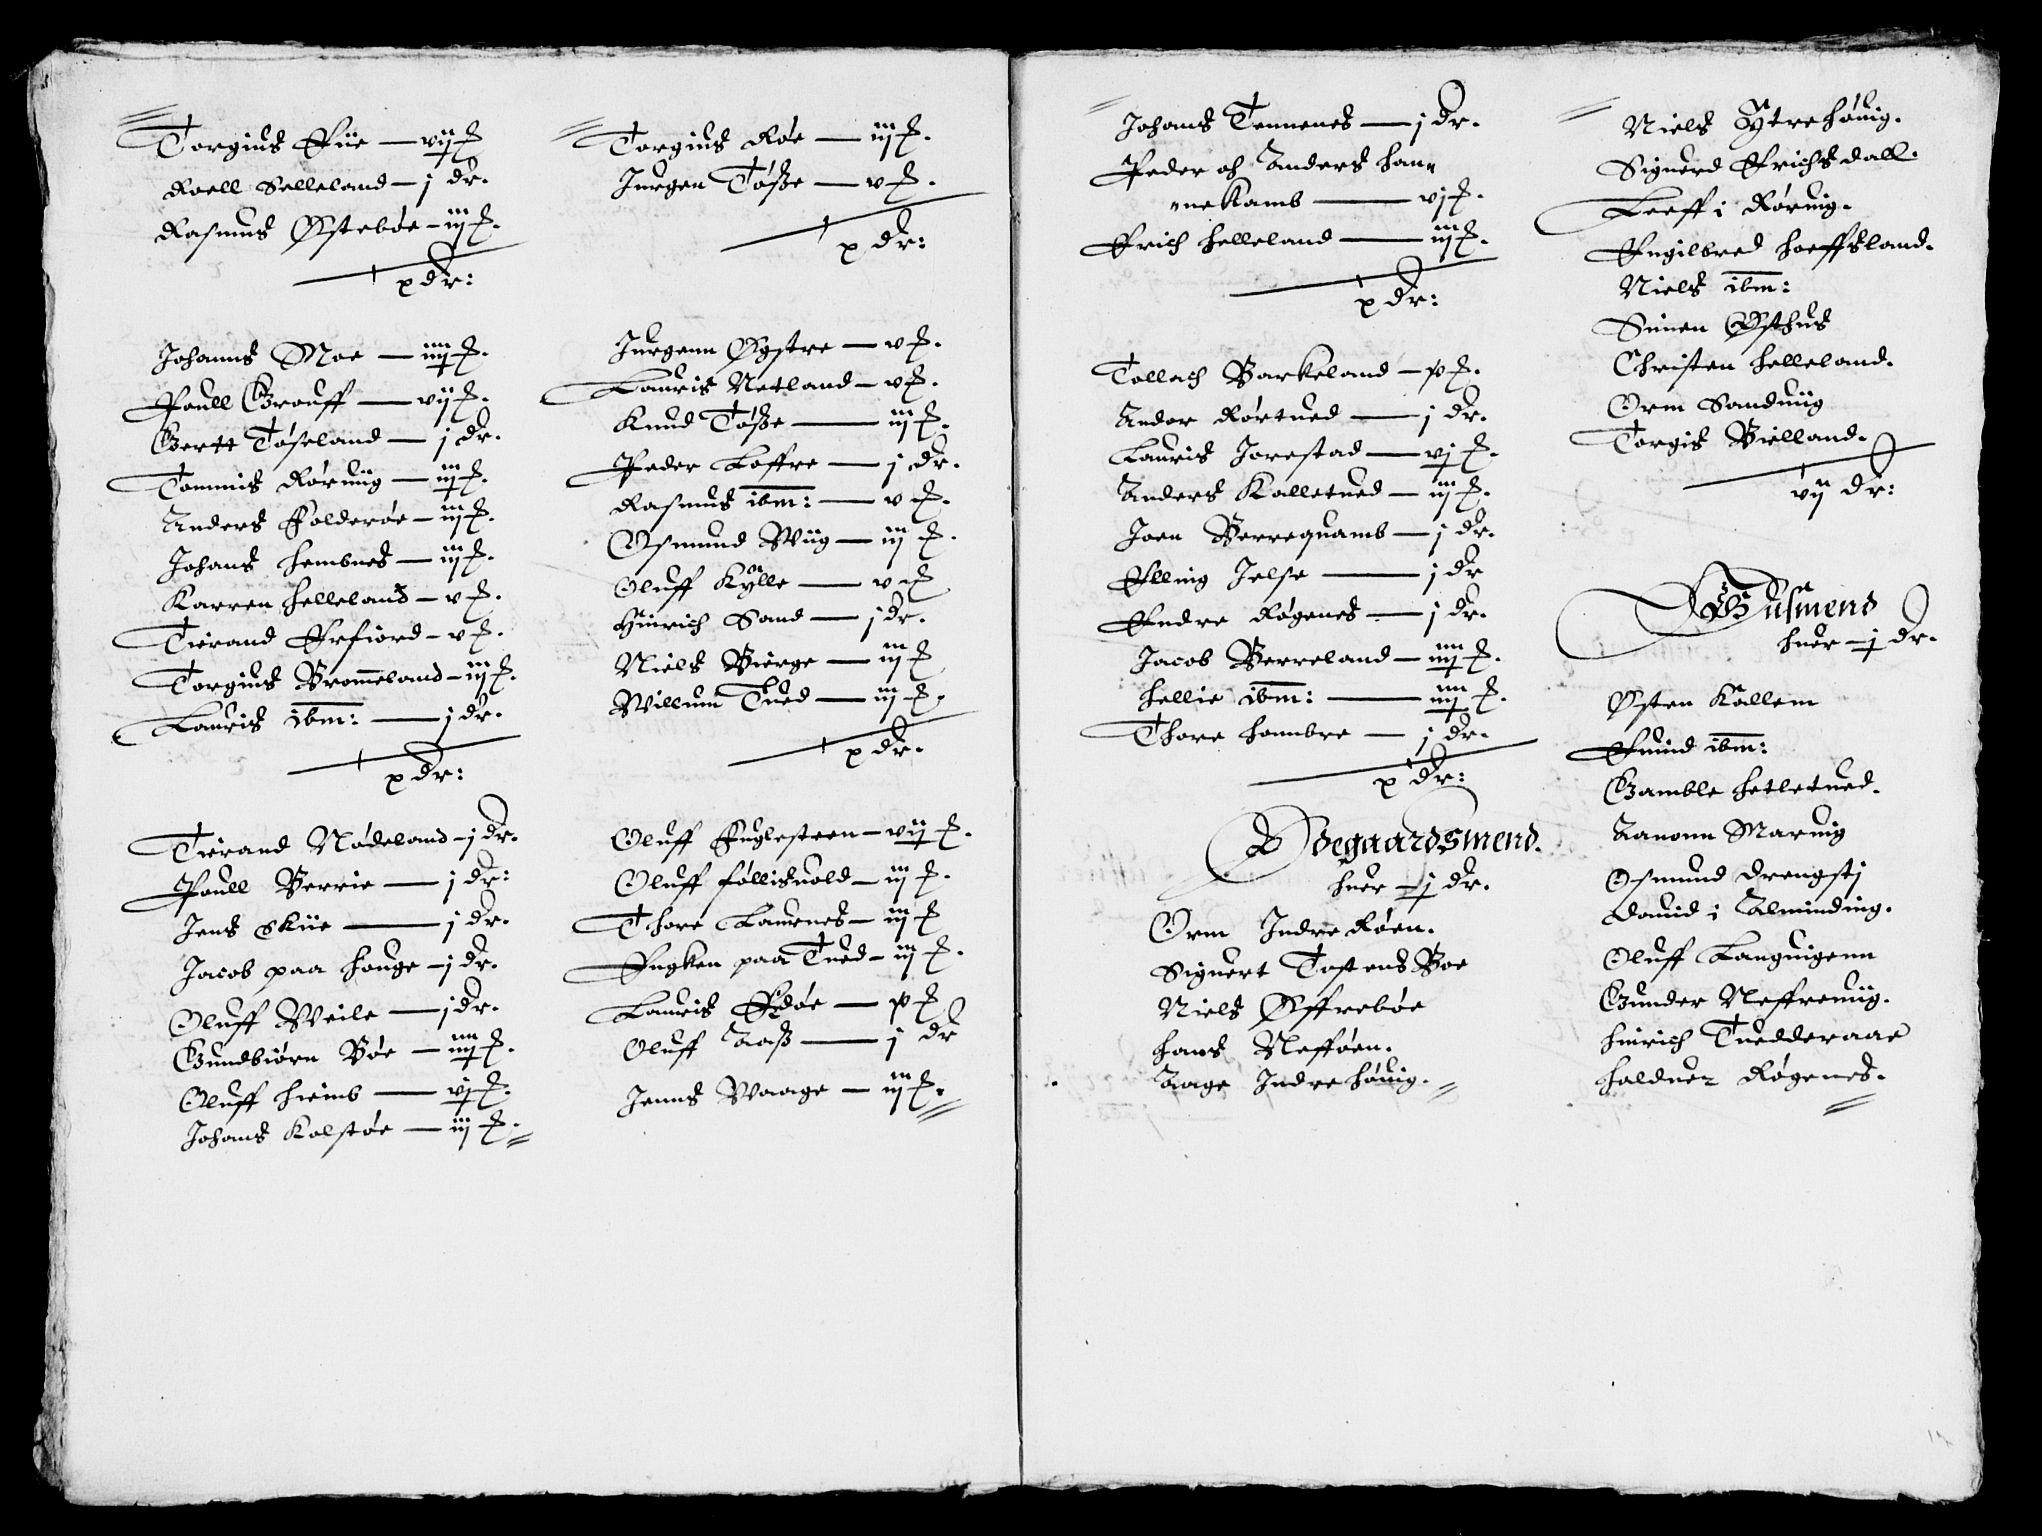 Torgius Fiie — vij ß
Roell Selleland — j dr.
Rasmus Østebøe — iij ß.
x dr:
Johanns Moe — iiij ß.
Poull Grouff — vij ß.
Gertt Tøseland — j dr.
Tommis Røruiig — iij ß.
Anders Folderøe — iij ß.
Johans Hembnes — iij ß.
Karren Helleland — v ß.
Tierand Erfiord — v ß.
Torgius Brommeland — iij ß.
Lauris ibm: — j dr.
x dr:
Tierand Nødeland — j dr.
Poull Berrie — j dr:
Jens Skiie — j dr.
Jacob paa Houge — j dr.
Oluff Weile — j dr.
Gundbiørn Bøe — iiij ß.
Oluff Hiemb — vj ß.
Johans Kolstøe — iij ß.
Torgius Røe — iij ß.
Jurgen Tøsße — v ß.
x dr:
Jurgenn Øystre — v ß.
Lauris Netland — v ß.
Knud Tøsße — iij ß.
Peder Loffre — j dr.
Rasmus ibm: — v ß.
Osmund Wiig — iij ß.
Oluff Kylle — v ß
Hinrich Sand — j dr.
Niels Bierge — iij ß
Willum Tued — iij ß.
x dr.
Oluff Fuglesteen — vij ß.
Oluff Føllisuold — iij ß.
Thore Laurnes — iij ß
Engken paa Tued — iij ß.
Lauris Feøe — xß
Oluff Aasß — j dr
Jenns Waage — iij ß.
Johans Tennenes — j dr.
Peder oh Anders Han„
„nekamb — vj ß.
Erich Helleland — iij ß.
x dr:
Tollach Barkeland — xß.
Ander Rørtued — j dr.
Lauris Jorestad — vj ß.
Anders Kalletued — iij ß.
Joen Berrequamb — j dr.
Elling Jelse — j dr
Endre Røgenes — j dr.
Jacob Berreland — iiij ß.
Hellie ibm: — iiij ß.
Thore Hambre — j dr.
x dr:
Ødegaardsmend.
huer — j dr.
Orm Indre Røen.
Siguert Tostens Boe
Niels Øffrebøe
Hans Nefføen.
Aage Indre Høuig.
Niels Ytre Høuig.
Siguerd Erichsdall.
Leeff i Røruig.
Engilbred Hoeffsland.
Niels ibm:
Simen Østhus
Christen Helleland.
Orm Sanduiig
Torgis Bielland.
vij dr:
Husmend
huer — j dr.
Østen Kallem
Euind ibm:
Gamble Hetletued.
Aanonn Maruig
Osmund Drengstj
Dauid i Alminding.
Oluff Languigenn
Gunder Neffreuiig.
Hinrich Tuedderaae
Halduer Røgenes.